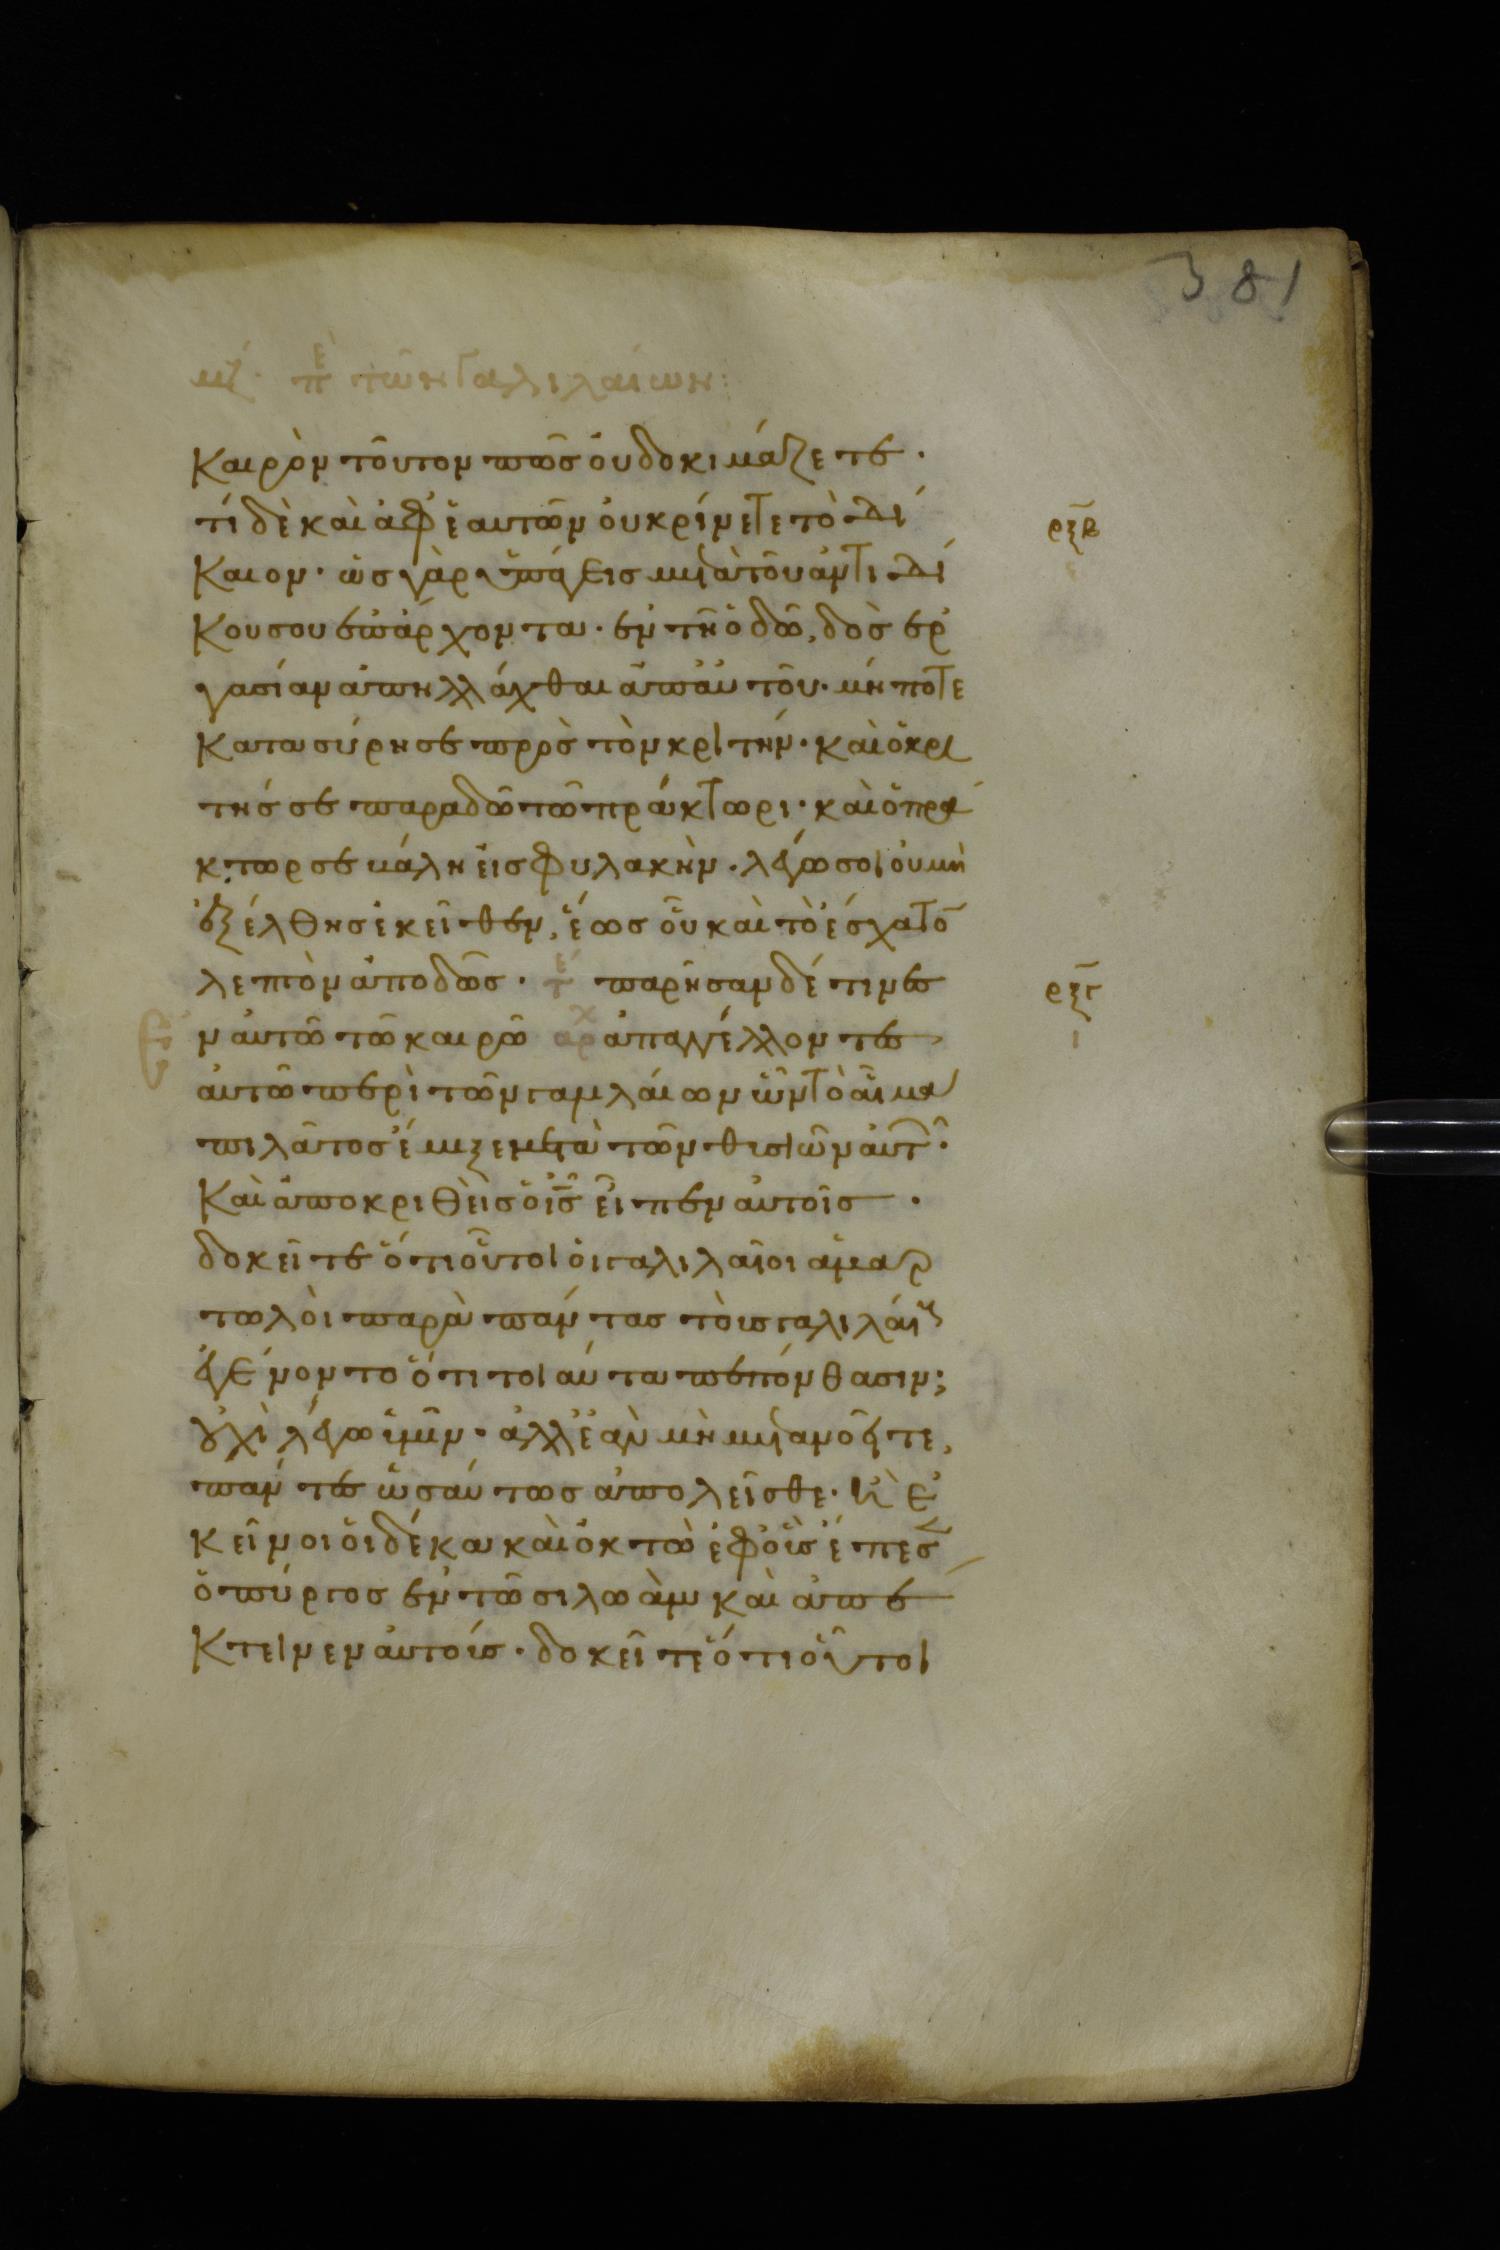 381
μζ· πε τῶν Γαλιλαίων:
καιρὸν τοῦτον πῶς οὐ δοκιμάζετε·
τί δὲ καὶ ἀφ' ἑαυτῶν οὐ κρίνετε τὸ δί
ρξβ
καιον· ὡς γὰρ ὑπάγεις μετὰ τοῦ ἀντιδί
κου σου ἐπ' ἄρχοντα· ἐν τῆ ὁδῶ, δὸς ἐρ
γασίαν ἀπηλλάχθαι ἀπ' αὐτοῦ· μήποτε
κατασύρη σε πρὸς τὸν κριτήν· καὶ ὁ κρι
τής σε παραδῶ τῶ πράκτωρι· καὶ ὁ πρά
κτωρ σε βάλη εἰς φυλακὴν· λέγω σοι οὐ μὴ
ἐξέλθης ἐκεῖθεν, ἕως οὗ καὶ τὸ ἔσχατο
λεπτὸν ἀποδῶς· τε παρῆσαν δέ τινες
ρξγ
ι
ν αὐτῶ τῶ καιρῶ αρχ ἀπαγγέλλοντες
αὐτῶ περὶ τῶν γαλιλαίων ὧν τὸ αἷμα
πιλᾶτος ἔμιξε μετὰ τῶν θυσιῶν αὐτ·
καὶ ἀποκριθεὶς ὁ ις εἶπεν αὐτοῖς·
δοκεῖτε ὅτι οὗτοι οἱ γαλιλαῖοι ἁμαρ
τωλοὶ παρὰ πάντας τοὺς γαλιλαί
ἐγένοντο ὅτι τοιαῦτα πεπόνθασιν;
οὐχὶ λέγω ὑμῖν· ἀλλ' ἐὰν μὴ μετανοῆτε,
πάντες ὡσαύτως ἀπολεῖσθε· ἢ ἐ
κεῖνοι οἱ δέκα καὶ ὀκτὼ ἐφ' οὓς ἔπεσ
ὁ πύργος ἐν τῶ σιλωὰμ καὶ ἀπέ
κτεινεν αὐτούς· δοκεῖτε ὅτι οὗτοι